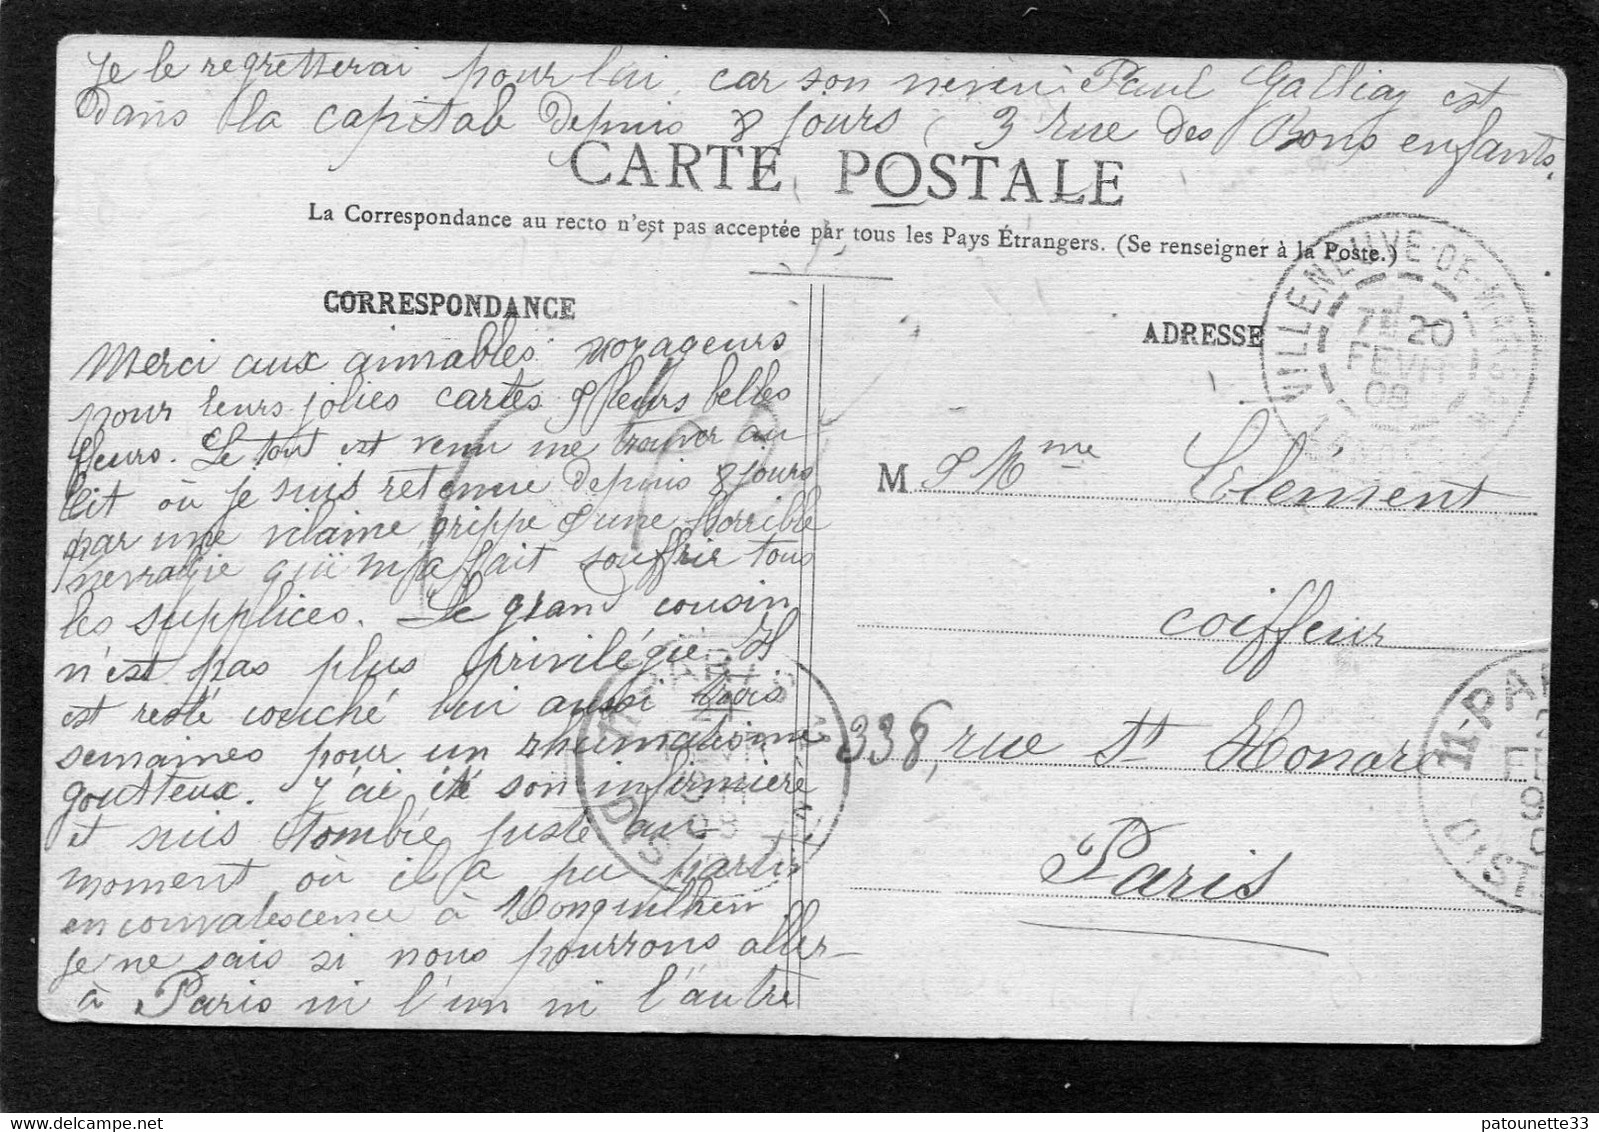 Je le regretterai pour lui, car son neveu Paul est
dans la capitale depuis 8 jours, 3 rue des Bons enfants.
CARTE POSTALE
La Correspondance au recto n'est pas acceptée par tous les Pays Étrangers. (Se renseigner à la Poste.)
CORRESPONDANCE
Merci aux aimables voyageurs
pour leurs jolies cartes & leurs belles
fleurs. Le tout est venu me trouver au
lit où je suis retenue depuis 8 jours
par une vilaine grippe & une horrible
nevralgie qui m'a fait souffrir tous
les supplices. Le grand cousin
n'est pas plus privilégié. Il
est resté couché lui aussi trois
semaines pour un rhumatisme
goutteux. J'ai été son infirmière
et suis tombée juste au
moment où il a pu partir
en convalescence à
Je ne sais si nous pourrons aller
à Paris ni l'un ni l'autre
ADRESSE
VILLENEUVE-DE-MARSAN
7E 20
FEVR
08
LANDES
M & Mme Clément
coiffeur
338, rue St Honoré
Paris
11-PARIS
DIS
patounette33